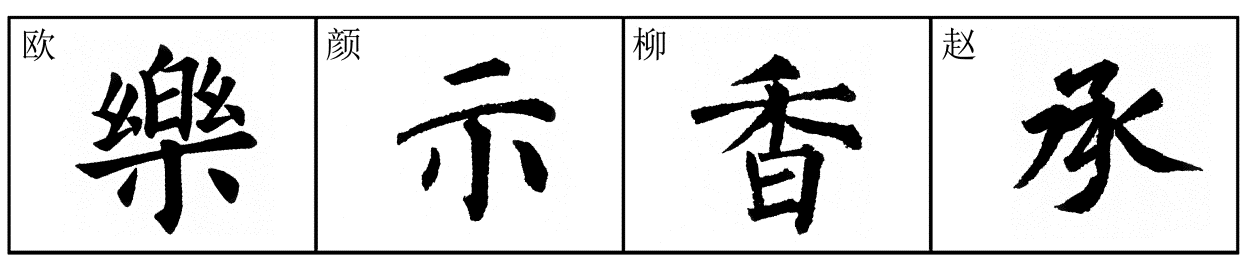 欧 樂 颜 示 柳 香 赵 承